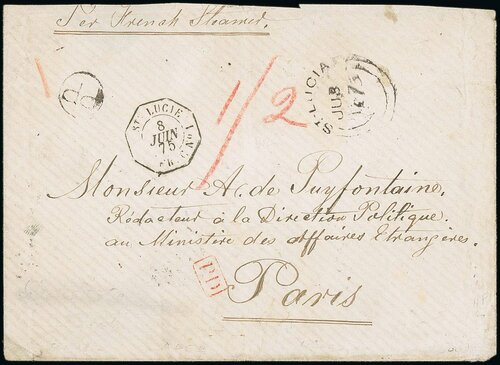 Per French Steamer.
PD
ST. LUCIE
8
JUIN
75
1/2
ST-LUCIA
JU 8
1875
Monsieur A. de Puyfontaine.
Rédacteur à la Direction Politique.
au Ministère des Affaires Etrangères.
P.D.
Paris